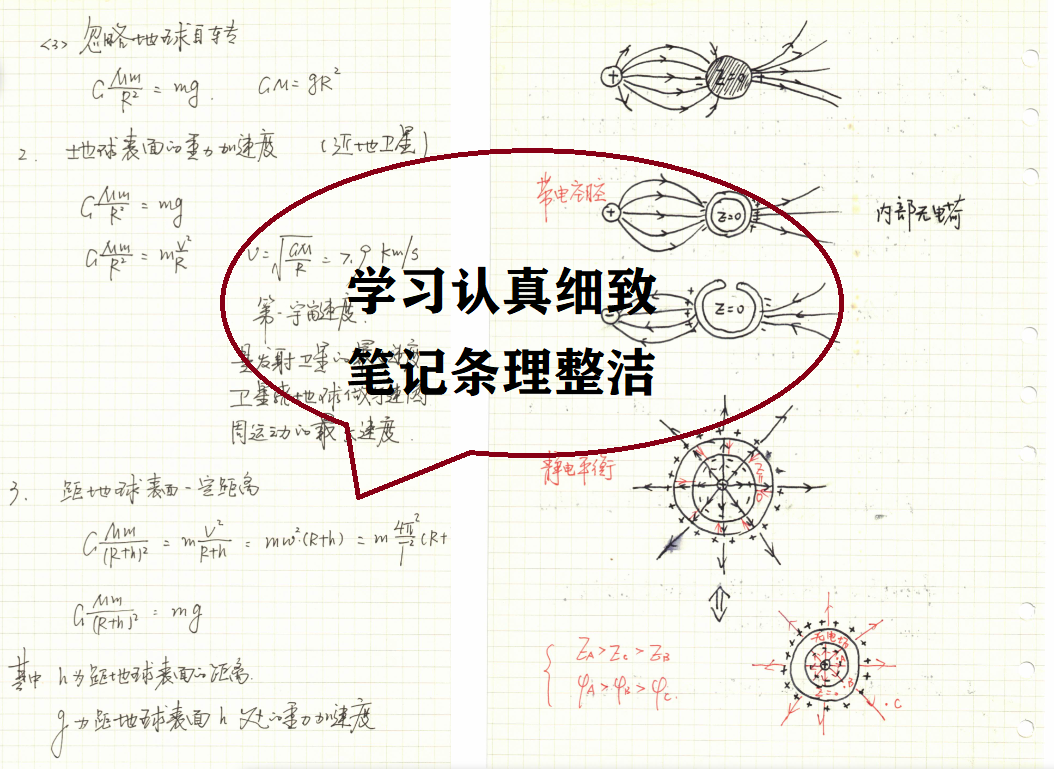 <3> 忽略地球自转
G Mm/R² = mg. GM = gR²
2. 地球表面的重力加速度 (近地卫星)
G Mm/R² = mg
G Mm/R² = m v²/R v = √(GM/R) = 7.9 km/s
第一宇宙速度.
是发射卫星的最 速度
卫星绕地球做匀速圆
周运动的最大速度.
3. 距地球表面一定距离
G Mm/(R+h)² = m v²/(R+h) = mω²(R+h) = m 4π²/T² (R+
G Mm/(R+h)² = mg
其中 h为距地球表面的距离.
g为距地球表面h处的重力加速度
学习认真细致
笔记条理整洁
Z=0
带电空腔
Z=0
内部无电荷
Z=0
静电平衡
Z=0
ZA > Zc > ZB
φA > φB > φC.
无电场
Z=0
.B
.C